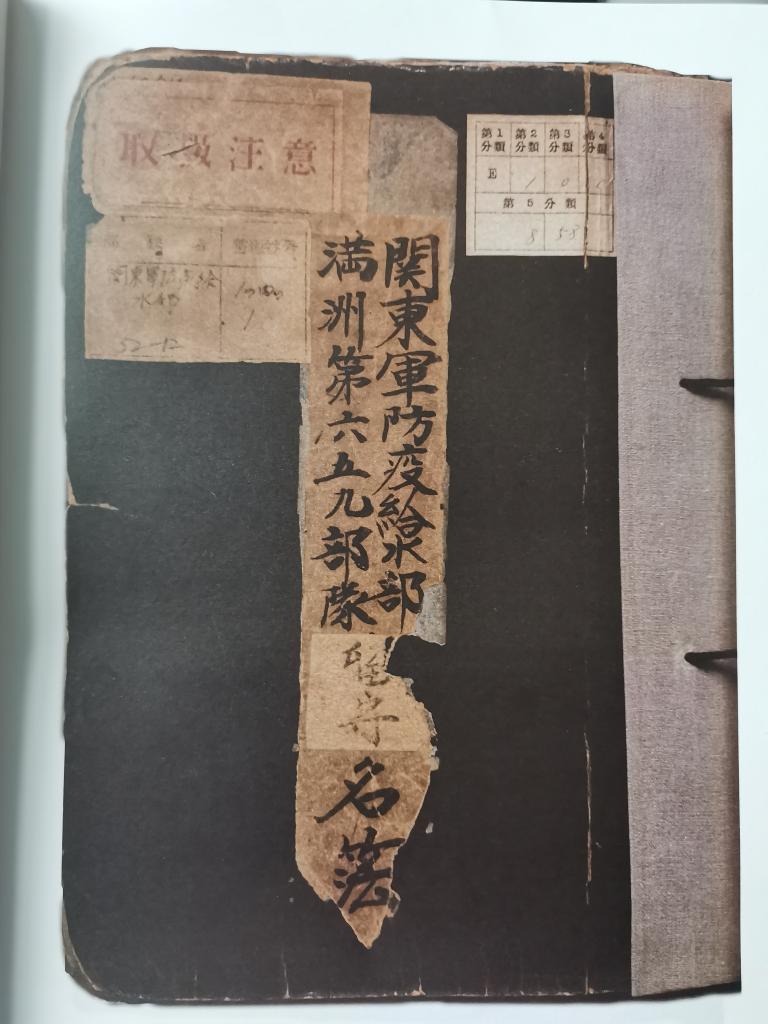 取扱注意
第1分類 第2分類 第3分類 第4分類
E 1 0
第5分類
8 58
関東軍防疫給水部
52-12
1
関東軍防疫給水部
満洲第六五九部隊
留守
名簿